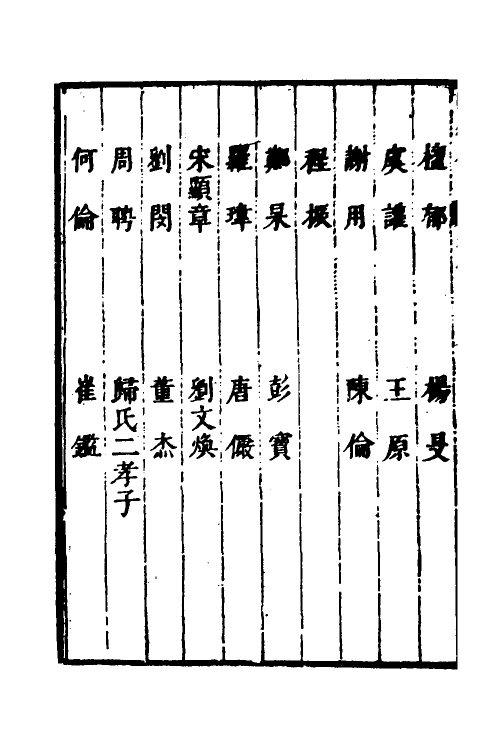 檀郁　楊旻
虞謹　王原
謝用　陳倫
程振
鄭杲　彭寶
羅瑋　唐儼
宋顯章　劉文煥
劉閔　董杰
周聘　歸氏二孝子
何倫　崔鑑